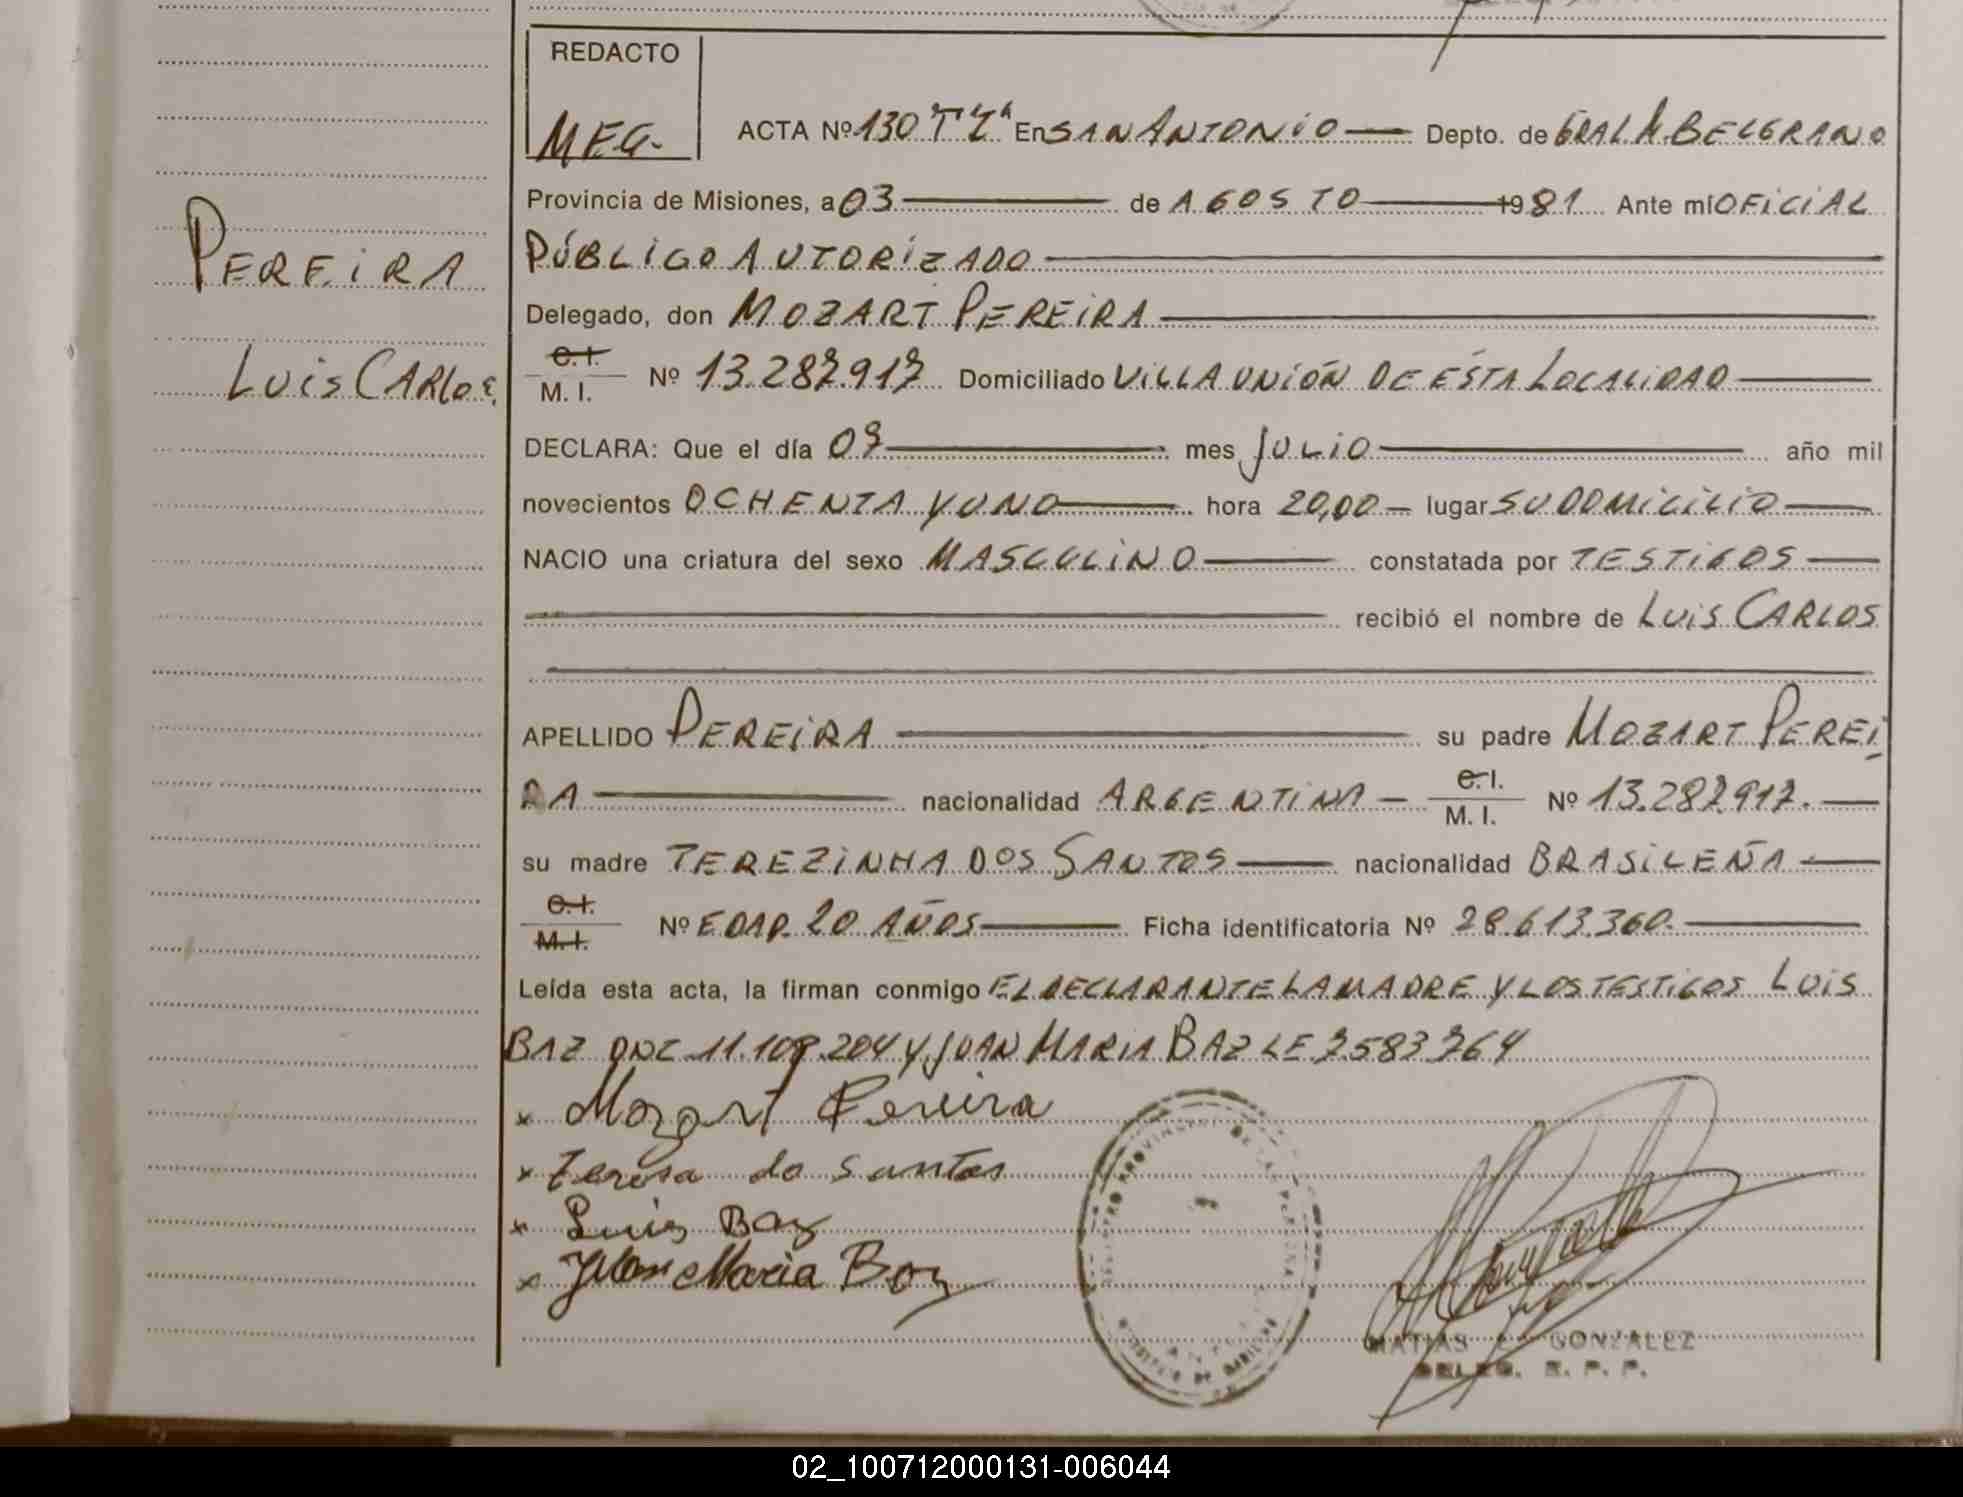 REDACTO
MEG.
ACTA Nº 130 Tº Iº En SAN ANTONIO Depto. de GRAL M. BELGRANO
Provincia de Misiones, a 03 de AGOSTO 1981 Ante mí OFICIAL
PÚBLICO AUTORIZADO
PEREIRA
LUIS CARLOS
Delegado, don MOZART PEREIRA
C.I.
M. I. Nº 13.287.917 Domiciliado VILLA UNIÓN DE ÉSTA LOCALIDAD
DECLARA: Que el día 09 mes JULIO año mil
novecientos OCHENTA Y UNO hora 20,00 lugar SU DOMICILIO
NACIO una criatura del sexo MASCULINO constatada por TESTIGOS
recibió el nombre de LUIS CARLOS
APELLIDO PEREIRA su padre MOZART PEREI
RA nacionalidad ARGENTINA C.I. M. I. Nº 13.287.917.
su madre TEREZINHA DOS SANTOS nacionalidad BRASILEÑA
C.I. M.I. Nº EDAD. 20 AÑOS Ficha identificatoria Nº 28.613.360.
Leída esta acta, la firman conmigo EL DECLARANTE LA MADRE Y LOS TESTIGOS LUIS
BAZ DNI 11.109.204 Y JUAN MARIA BAZ LE 7.583.764
x Mozart Pereira
x Teresa do Santos
x Luis Baz
x Juan Maria Baz
MATIAS GONZALEZ
DELEG. R. P. P.
02_100712000131-006044